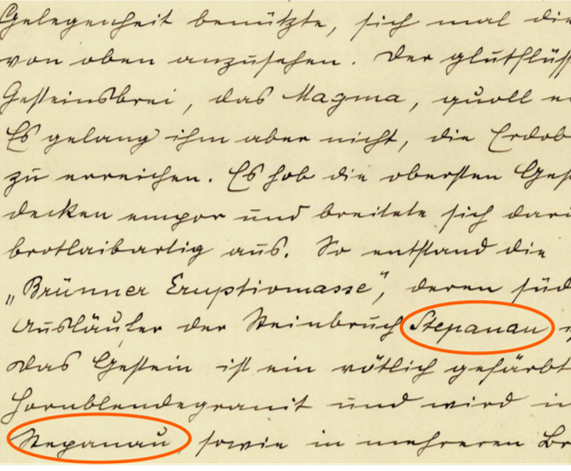 Gelegenheit benützte, sich mal die
von oben anzusehen. Der glutflüss
Gesteinsbrei, das Magma, quoll e
Es gelang ihm aber nicht, die Erdob
zu erreichen. Es hob die obersten Ges
decken empor und breitete sich darü
brotlaibartig aus. So entstand die
„Brünner Eruptivmasse", deren süd
Ausläufer der Steinbruch Stepanau
Das Gestein ist ein rötlich gefärbt
Hornblendegranit und wird in
Stepanau, sowie in mehreren Br